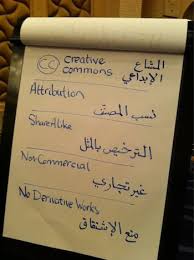 CC Creative المشاع
commons الإبداعي
Attribution
نسب المصنَّف
ShareAlike
الترخيص بالمثل
Non-Commercial
غير تجاري
No Derivative Works
منع الإشتقاق